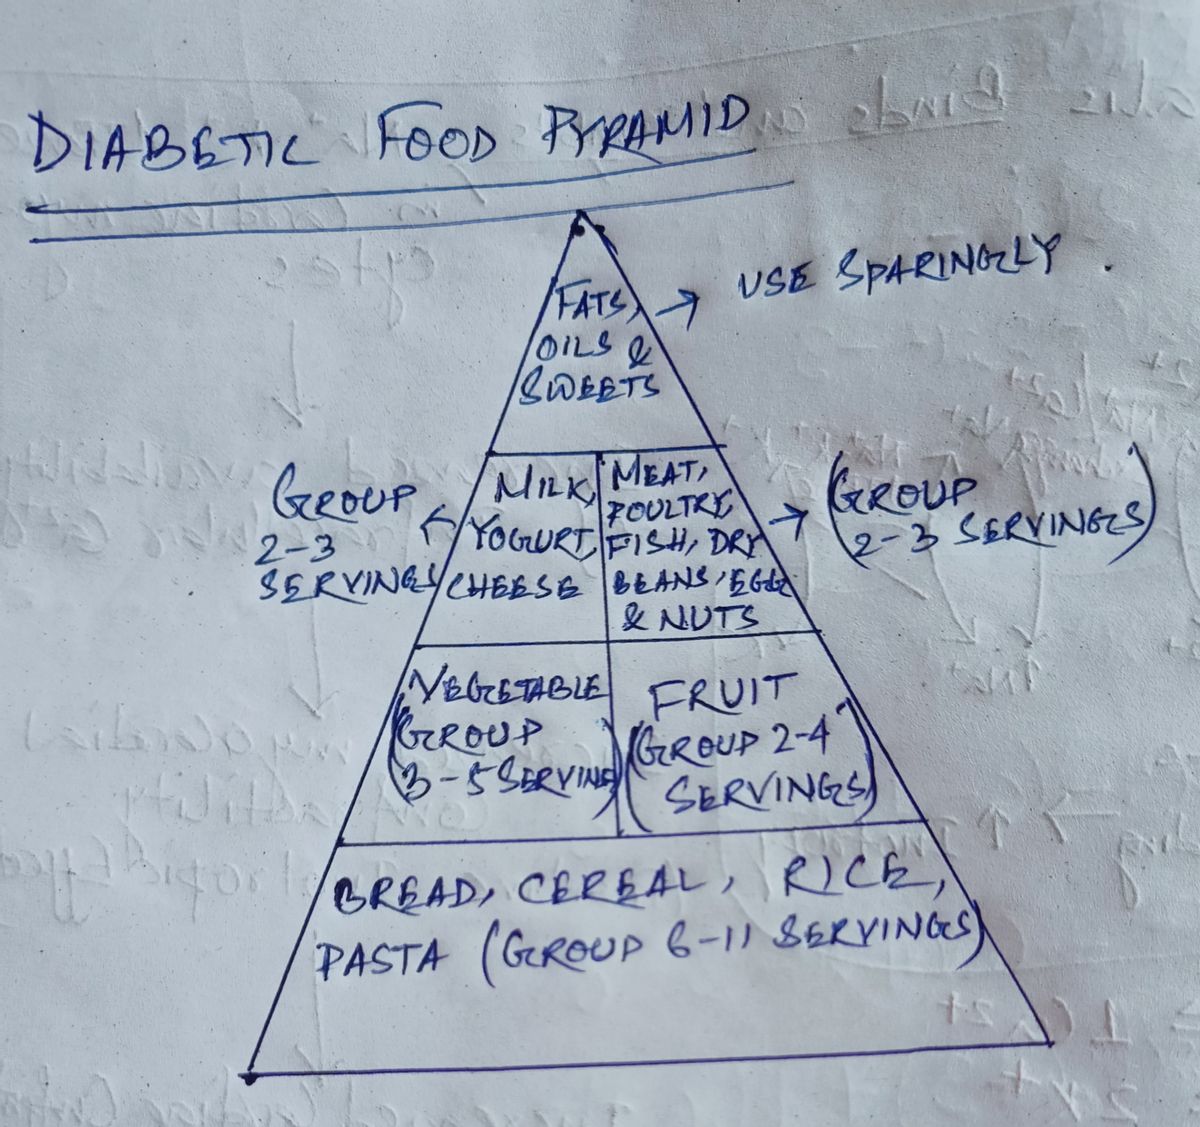 DIABETIC FOOD PYRAMID
FATS,
OILS &
SWEETS
→ USE SPARINGLY.
GROUP
2-3
SERVINGS
←
MILK,
YOGURT,
CHEESE
MEAT,
POULTRY,
FISH, DRY
BEANS, EGG
& NUTS
→
(GROUP
2-3 SERVINGS)
VEGETABLE
(GROUP
3-5 SERVING)
FRUIT
(GROUP 2-4
SERVINGS)
BREAD, CEREAL, RICE,
PASTA (GROUP 6-11 SERVINGS)